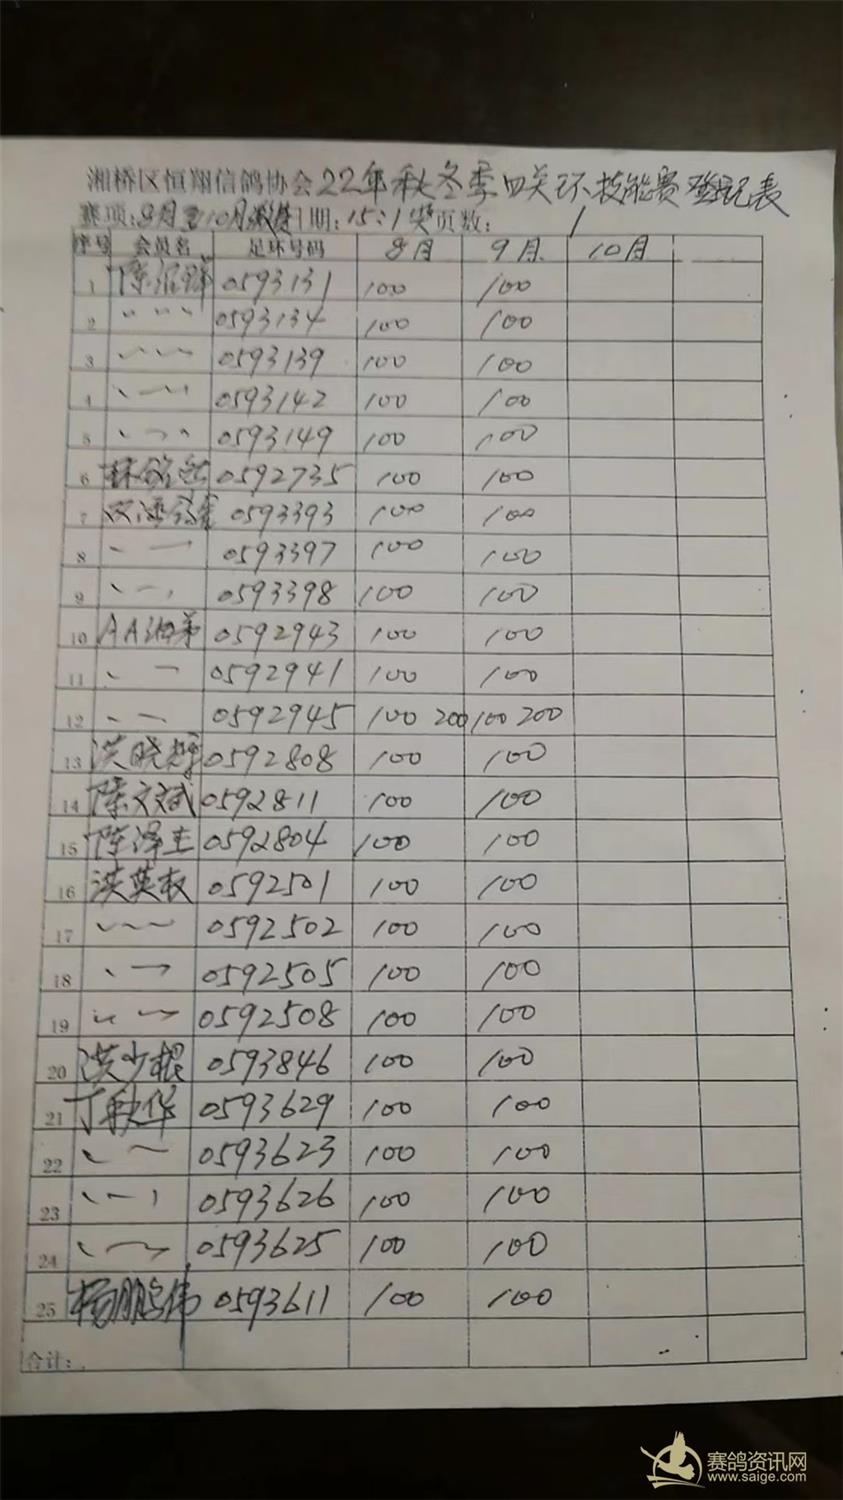 湘桥区恒翔信鸽协会22年秋冬季四关环技能赛登记表
赛项:8月至10月 日期:15:1奖页数: 1
序号 会员名 足环号码 8月 9月 10月
1 陈 0593131 100 100
2 〃〃〃 0593134 100 100
3 〃〃〃 0593139 100 100
4 〃〃〃 0593142 100 100
5 〃〃〃 0593149 100 100
6 林 0592735 100 100
7 0593393 100 100
8 〃〃 0593397 100 100
9 〃〃 0593398 100 100
10 AA湘弟 0592943 100 100
11 〃〃 0592941 100 100
12 〃〃 0592945 100 200 100 200
13 洪晓辉 0592808 100 100
14 陈文斌 0592811 100 100
15 陈泽圭 0592804 100 100
16 洪英权 0592501 100 100
17 〃〃〃 0592502 100 100
18 〃〃 0592505 100 100
19 〃〃 0592508 100 100
20 洪少棍 0593846 100 100
21 丁秋华 0593629 100 100
22 〃〃 0593623 100 100
23 〃〃〃 0593626 100 100
24 〃〃 0593625 100 100
25 杨鹏伟 0593611 100 100
合计:
赛鸽资讯网
www.saige.com